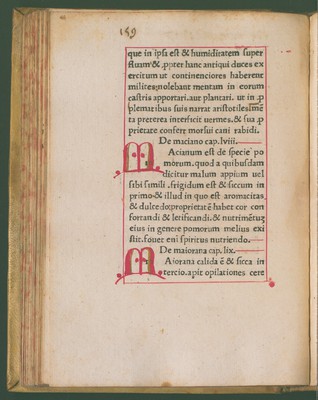 189
que in ipsa est & humiditatem super
fluam & ꝓpter hanc antiqui duces ex
ercitum ut continenciores haberent
milites nolebant mentam in eorum
castris apportari aut plantari. ut in ꝓ
plematibus suis narrat aristotiles
ta preterea interficit vermes. & sua ꝓ
prietate confert morsui cani rabidi.
De maciano cap. lviii.
Macianum est de specie po
morum. quod a quibusdam
dicitur malum appium uel
sibi simili. frigidum est & siccum in
primo & illud in quo est aromacitas
& dulcedo proprietatē habet cor con
fortandi & letificandi. & nutrimētuꝫ
eius in genere pomorum melius exi
stit. fouet eni spiritus nutriendo.
De maiorana cap. lix.
Maiorana calida ē & sicca in
tercio. apit opilationes cere